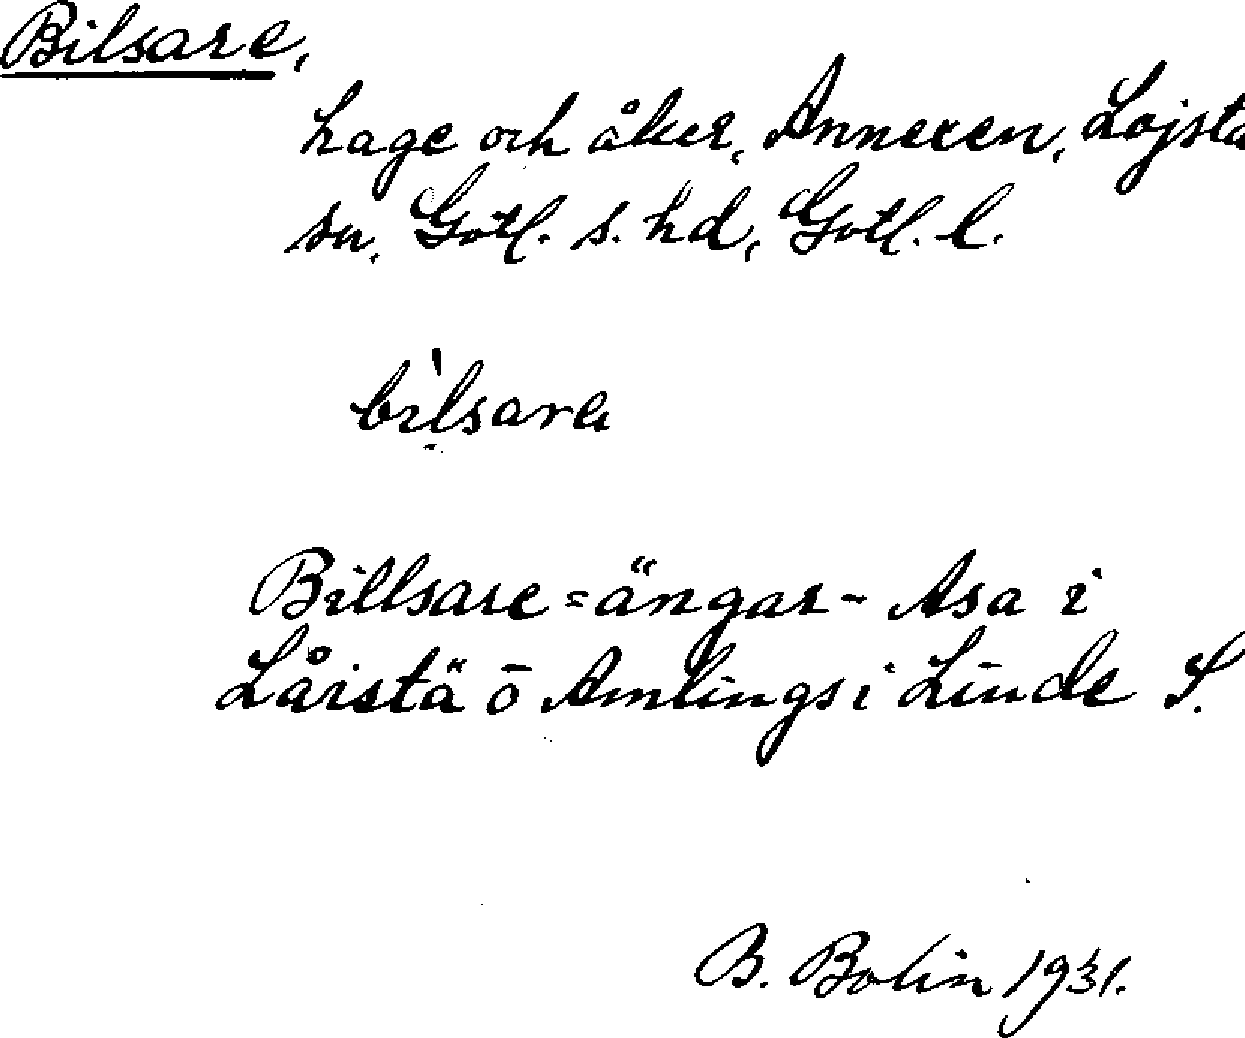 Bilsare,
hage och åker, Annexen, Lojsta
sn, Gotl. s. hd, Gotl. l.
bilsara
Billsare=ängar- Asa i
Låistä ö Amlings i Linde S.
B. Bolin 1931.